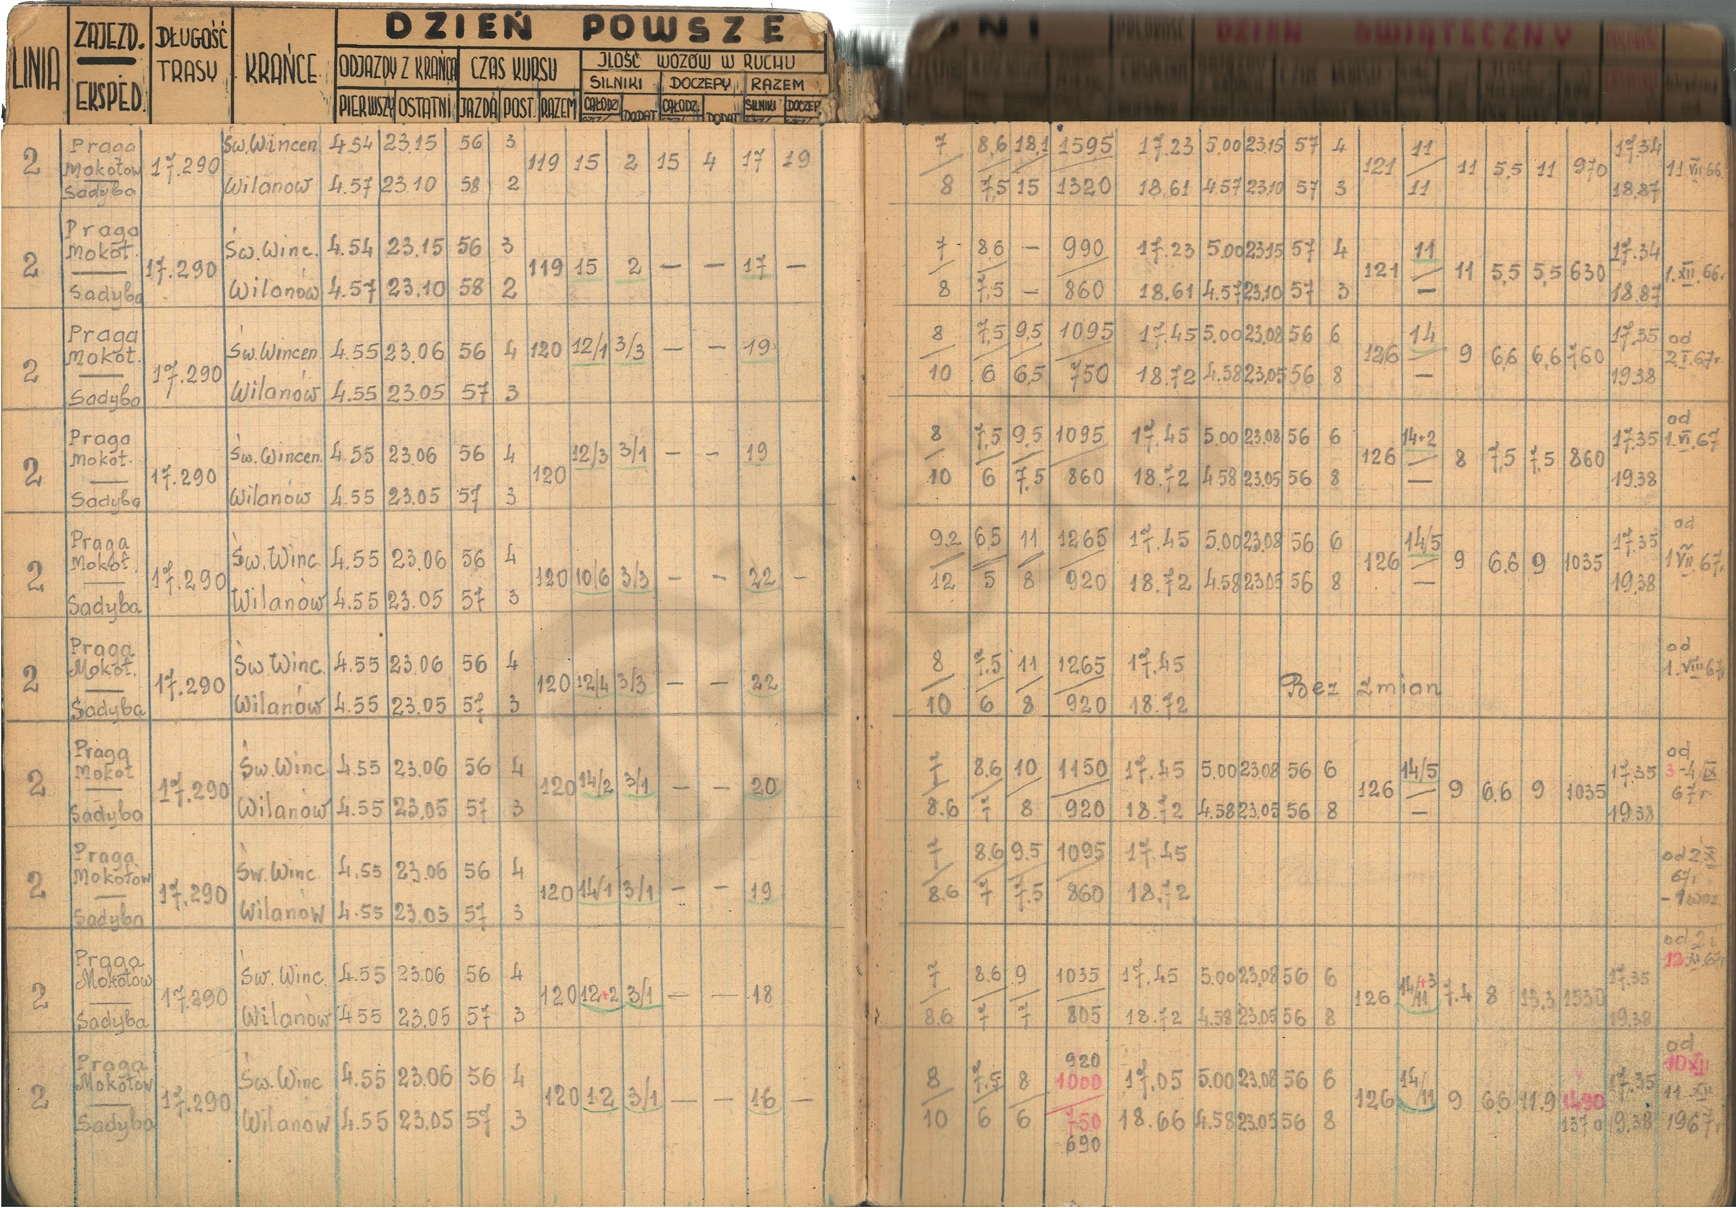 LINIA ZAJEZD. EKSPED. DŁUGOŚĆ TRASY KRAŃCE DZIEŃ POWSZE DNI DZIEŃ ŚWIĄTECZNY
ODJAZDY Z KRAŃCA CZAS KURSU ILOŚĆ WOZÓW W RUCHU
SILNIKI DOCZEPY RAZEM
PIERWSZY OSTATNI JAZDA POST. RAZEM CAŁODZ. DODAT CAŁODZ. DODAT SILNIKI DOCZEP.
2 Praga Mokotow Sadyba 17.290 Św.Wincen 4.54 23.15 56 3 119 15 2 15 4 17 19 7 8,6 18,1 1595 17.23 5.00 23.15 57 4 121 11 11 5,5 11 970 17.34 11.VII.66
Wilanow 4.57 23.10 58 2 8 7,5 15 1320 18.61 4.57 23.10 57 3 11 18.87
2 Praga Mokot. Sadyba 17.290 Św.Winc. 4.54 23.15 56 3 119 15 2 — — 17 — 7 8.6 — 990 17.23 5.00 23.15 57 4 121 11 11 5,5 5,5 630 17.34 1.XII.66.
Wilanów 4.57 23.10 58 2 8 7,5 — 860 18.61 4.57 23.10 57 3 — 18.87
2 Praga Mokot. Sadyba 17.290 Św.Wincen 4.55 23.06 56 4 120 12/1 3/3 — — 19 8 7,5 9,5 1095 17.45 5.00 23.08 56 6 126 14 9 6,6 6,6 760 17.35 od 2.I.67r
Wilanów 4.55 23.05 57 3 10 6 6,5 750 18.72 4.58 23.05 56 8 — 19.38
2 Praga Mokot. Sadyba 17.290 Św.Wincen. 4.55 23.06 56 4 120 12/3 3/1 — — 19 8 7,5 9,5 1095 17.45 5.00 23.08 56 6 126 14+2 8 7,5 7,5 860 17.35 od 1.VI.67
Wilanów 4.55 23.05 57 3 10 6 7,5 860 18.72 4.58 23.05 56 8 — 19.38
2 Praga Mokot. Sadyba 17.290 Św.Winc. 4.55 23.06 56 4 120 10/6 3/3 — — 22 — 9.2 6.5 11 1265 17.45 5.00 23.08 56 6 126 14/5 9 6,6 9 1035 17.35 od 1.VII.67.
Wilanów 4.55 23.05 57 3 12 5 8 920 18.72 4.58 23.05 56 8 — 19.38
2 Praga Mokot. Sadyba 17.290 Św.Winc. 4.55 23.06 56 4 120 12/4 3/3 — — 22 8 7.5 11 1265 17.45 Bez zmian od 1.VIII.67
Wilanów 4.55 23.05 57 3 10 6 8 920 18.72
2 Praga Mokot Sadyba 17.290 Św.Winc 4.55 23.06 56 4 120 14/2 3/1 — — 20 7 8.6 10 1150 17.45 5.00 23.08 56 6 126 14/5 9 6,6 9 1035 17.35 od 3-4.IX 67r
Wilanów 4.55 23.05 57 3 8.6 7 8 920 18.72 4.58 23.05 56 8 — 19.38
2 Praga Mokotów Sadyba 17.290 Św.Winc. 4.55 23.06 56 4 120 14/1 3/1 — — 19 7 8.6 9.5 1095 17.45 od 2.XI 67r - 1 woz
Wilanów 4.55 23.05 57 3 8.6 7 7.5 860 18.72
2 Praga Mokotów Sadyba 17.290 Św. Winc. 4.55 23.06 56 4 120 12+2 3/1 — — 18 7 8.6 9 1035 17.45 5.00 23.08 56 6 126 14+3/11 7.4 8 13,3 1530 17.35 od
Wilanów 4.55 23.05 57 3 8.6 7 7 805 18.72 4.58 23.05 56 8 19.38
2 Praga Mokotów Sadyba 17.290 Św. Winc 4.55 23.06 56 4 120 12 3/1 — — 16 — 8 7.5 8 920 1000 17.05 5.00 23.08 56 6 126 14/11 9 6,6 11.9 1490 17.35 od 10.XII 11.XII 1967r
Wilanów 4.55 23.05 57 3 10 6 6 750 690 18.66 4.58 23.05 56 8 1370 19.38